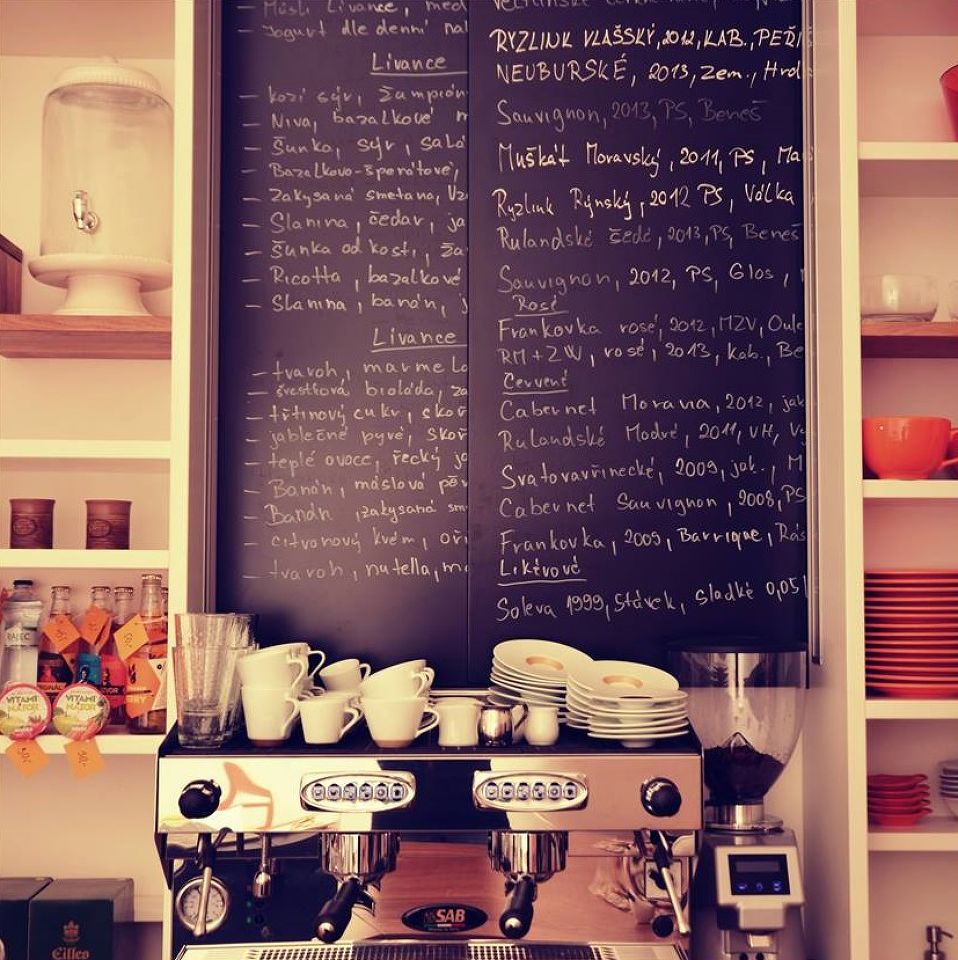 Müsli Livance, med
Jogurt dle denní
Livance
– kozí sýr, žampión
– Niva, bazalkové
– šunka, sýr, sala
– Bazalkovo-špenátové,
– zakysaná smetana,
– Slanina, čedar, ja
– šunka od kosti, ža
– Ricotta, bazalkové
– Slanina, banán, j
Livance
– tvaroh, marmela
– švestková
– třtinový cukr, skoř
– jablečné pyré, skoř
– teplé ovoce, řecký jo
– Banán, máslová
– Banán, zakysaná sm
– citronový krém, oří
– tvaroh, nutella, ma
RYZLINK VLAŠSKÝ, 2012, KAB.,
NEUBURSKÉ, 2013, zem.,
Sauvignon, 2013, PS, Beneš
Muškát Moravský, 2011, PS, Ma
Ryzlink Rýnský, 2012 PS, Volka
Rulandské šedé, 2013, PS, Beneš
Sauvignon, 2012, PS, Glos,
Rosé
Frankovka rosé, 2012, MZV,
RM + ZW, rosé, 2013, kab., Be
Červené
Cabernet Moravia, 2012, jak
Rulandské Modré, 2011, VH,
Svatovavřinecké, 2009, jak., M
Cabernet Sauvignon, 2008, PS
Frankovka, 2009, Barrique,
Likérové
Soleva 1999, slámové, sladké 0,05 l
RAJEC
VITAMI
VITAMI
SAB
Eilles